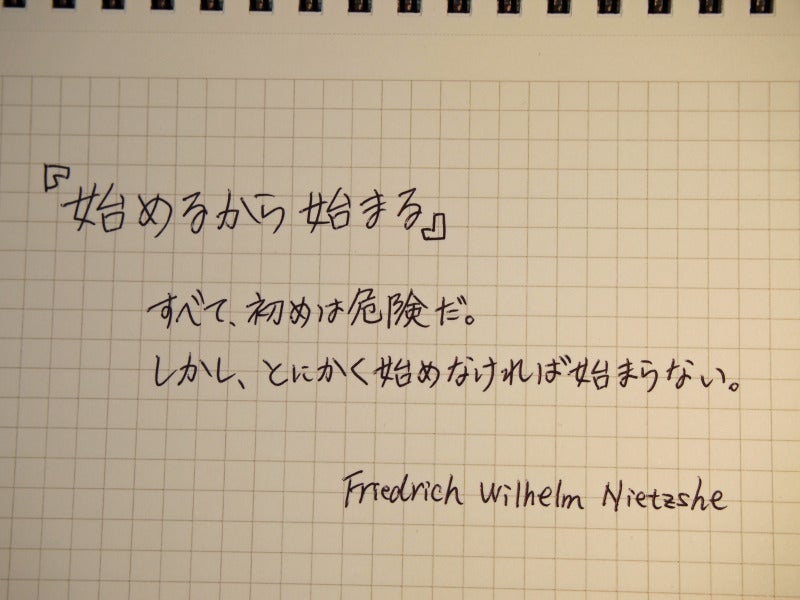 『始めるから始まる』
すべて、初めは危険だ。
しかし、とにかく始めなければ始まらない。
Friedrich Wilhelm Nietzshe